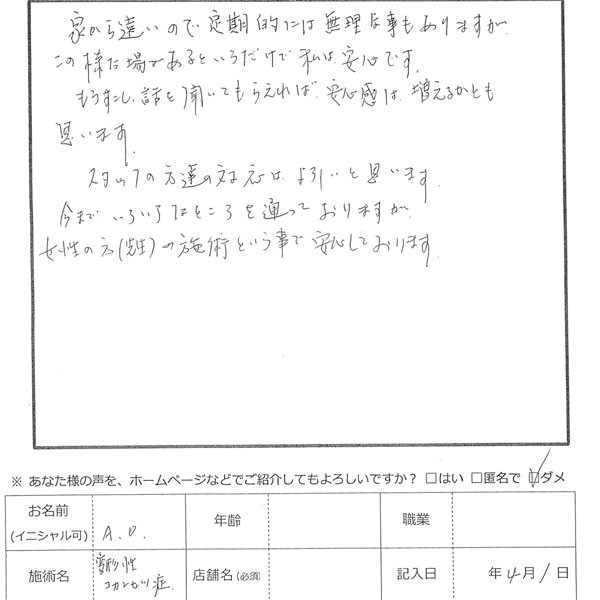 家から遠いので定期的には無理な事もありますが、
この様な場があるというだけで私は安心です。
もうすこし話を聞いてもらえれば、安心感は増えるかとも
思います。
スタッフの方達の対応はよろしいと思います。
今まで いろいろなところを通っておりますが、
女性の方(先生)の施術という事で安心しております。
※ あなた様の声を、ホームページなどでご紹介してもよろしいですか？ □はい □匿名で ☑ダメ
お名前 (イニシャル可) A.O. 年齢 職業
施術名 変形性コカンセツ症 店舗名(必須) 記入日 年4月1日